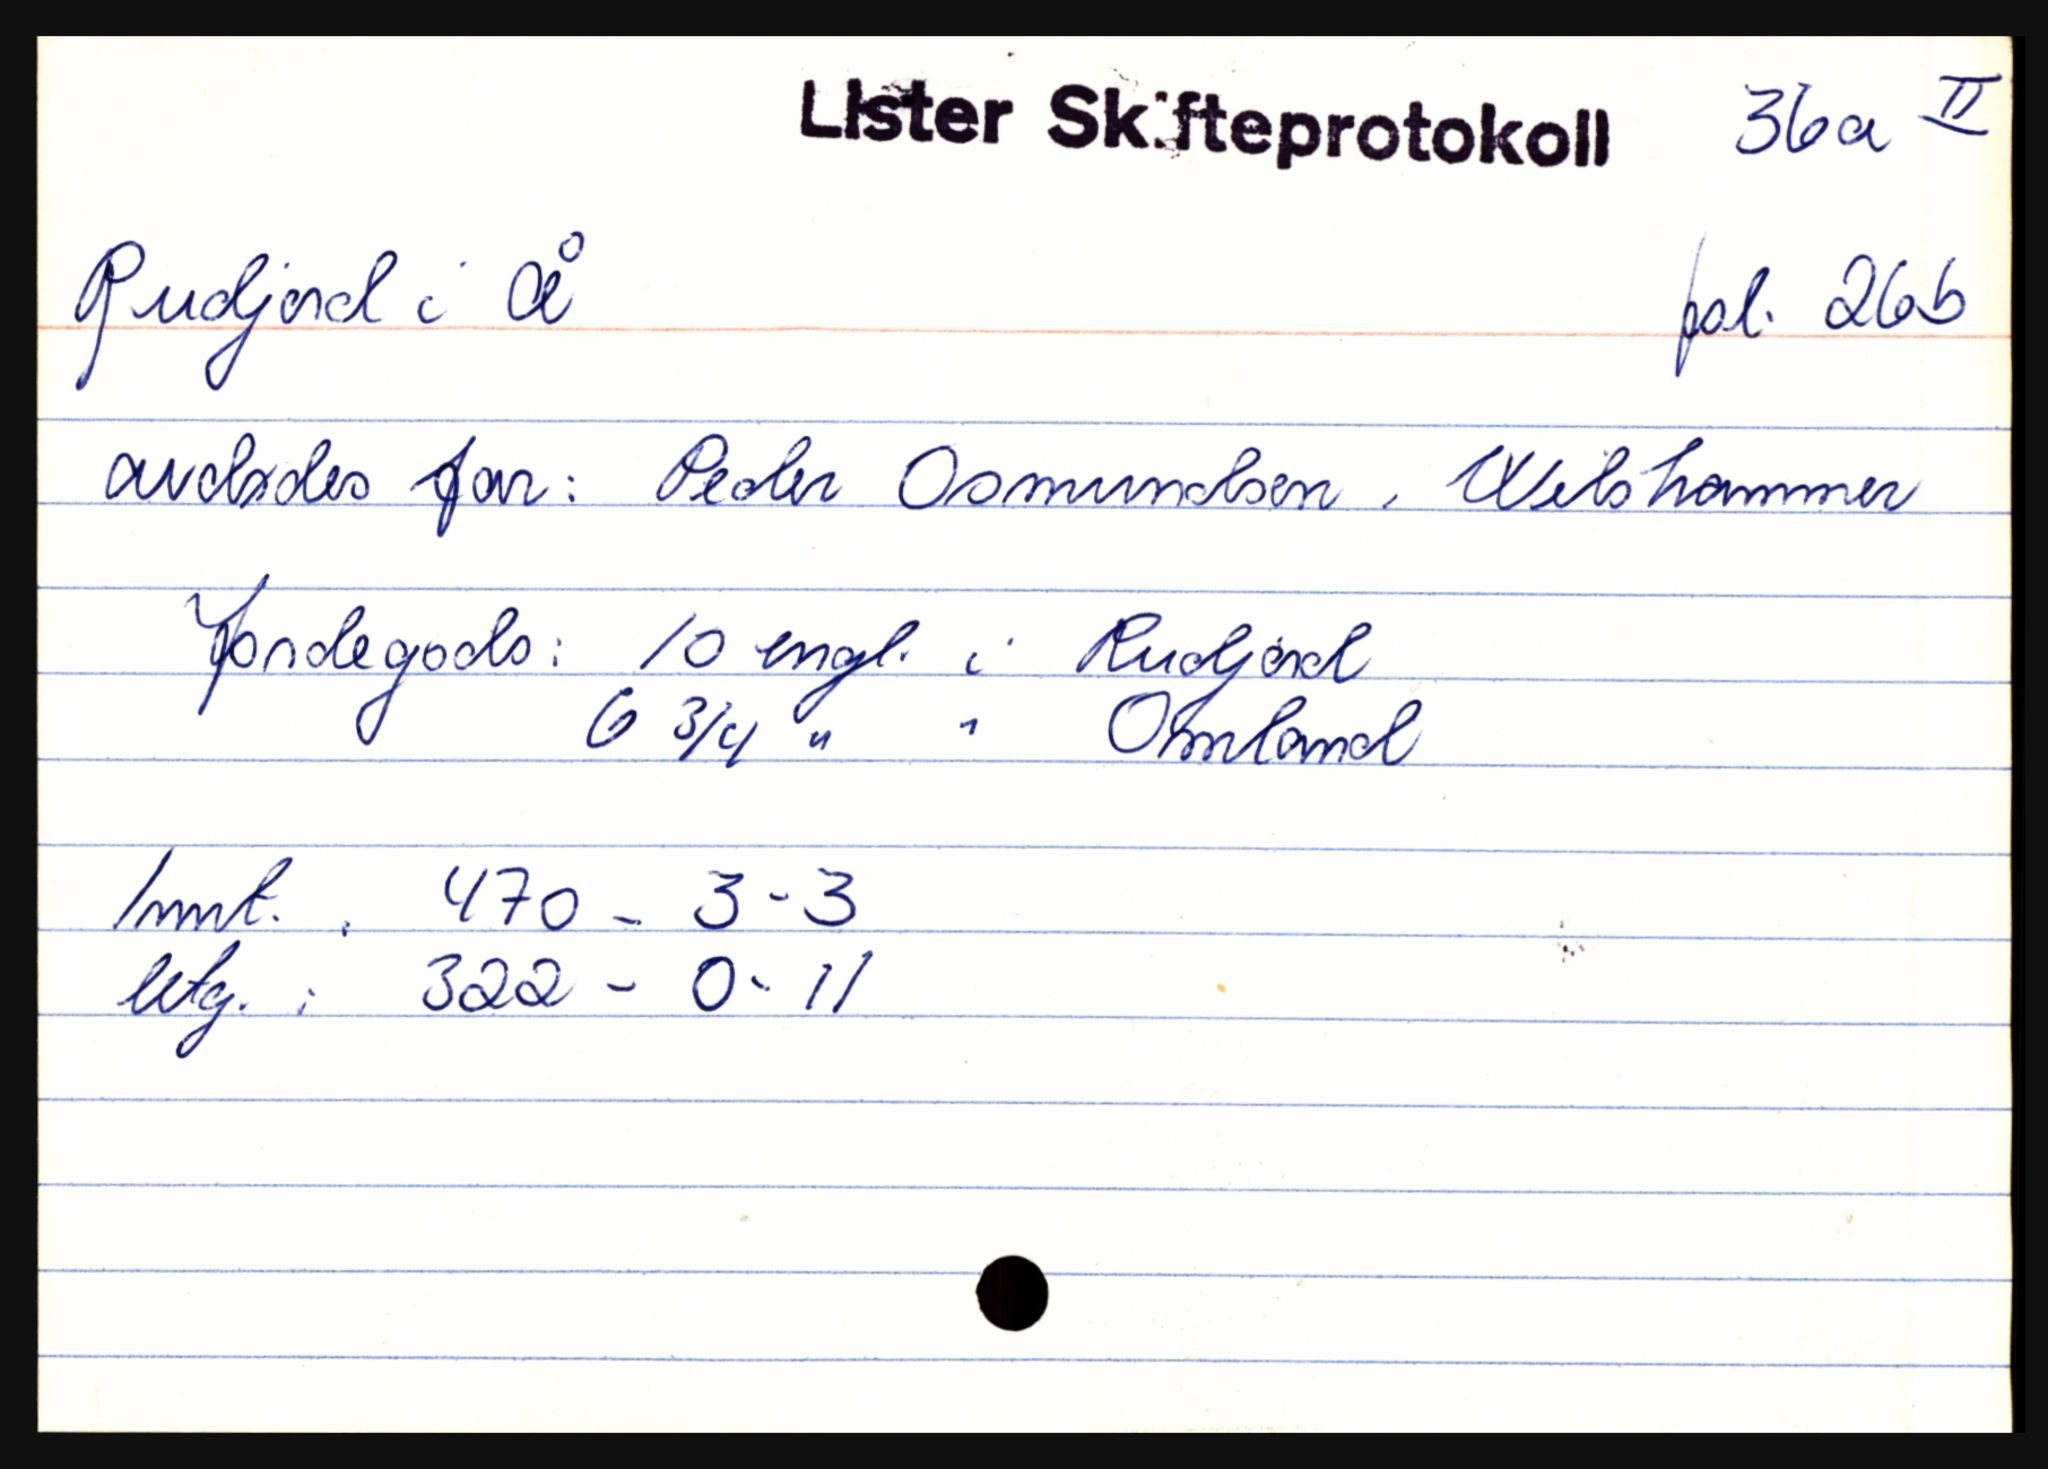 Lister Skifteprotokoll 36a II
Rudjord i Å fol. 26b
avdødes far: Peder Osmundsen, Wilshammer
Jordegods: 10 engl. i Rudjord
6 3/4 " " Omland
Innt. : 470 - 3 - 3
Utg. : 322 - 0 - 11